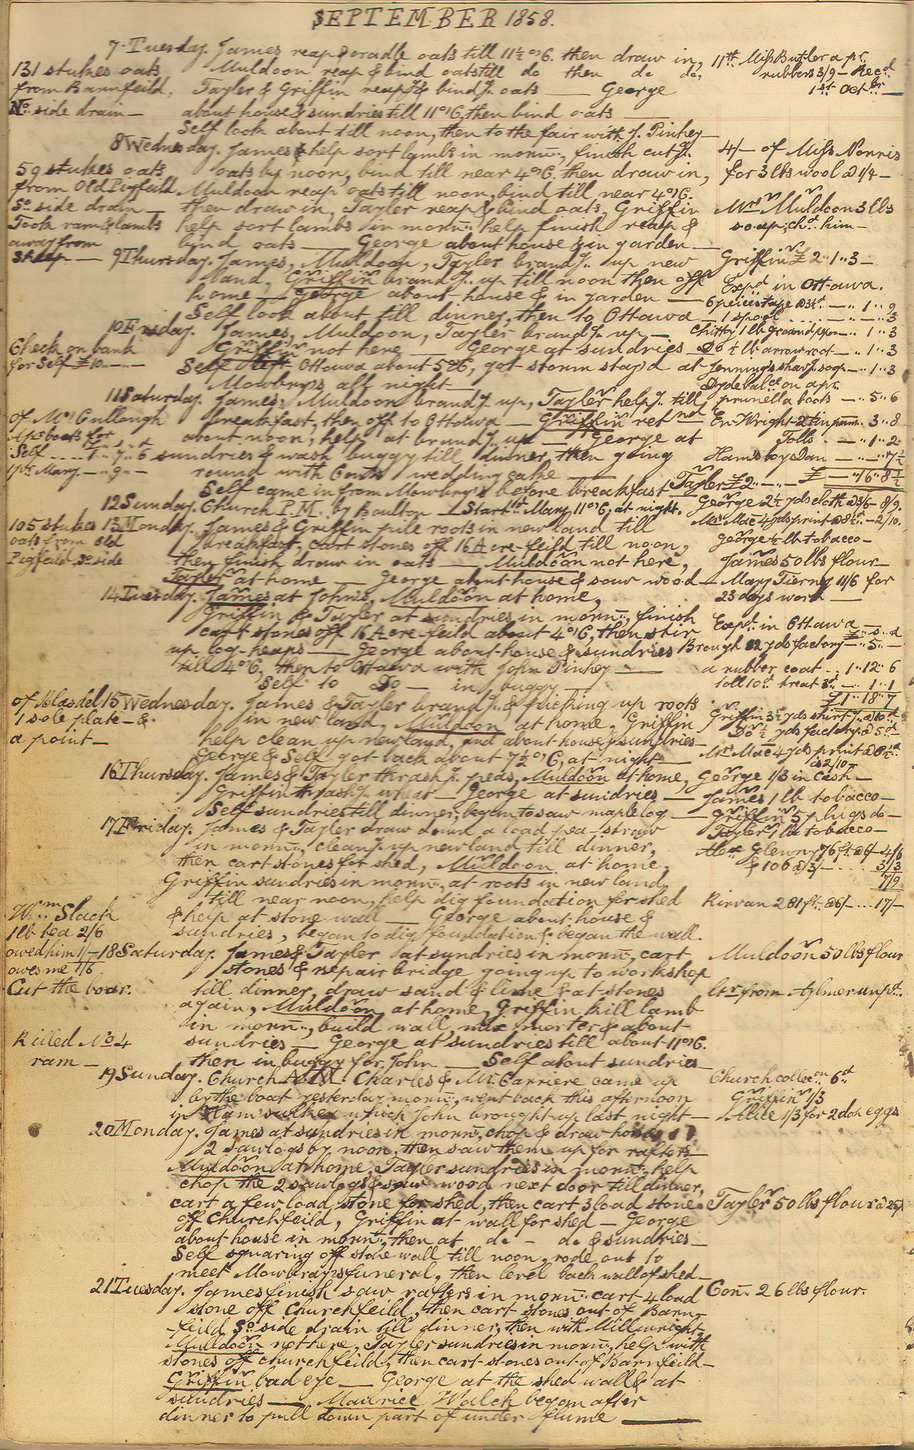 SEPTEMBER 1858.
7 Tuesday. James reap & cradle oats till 11½ o'6. then draw in, 11th Miss Butler a pr.
131 stukes oats Muldoon reap & bind oats till do then do do, rubbers 3/9 – Recd
from Barnfeild, Tayler & Griffin reap & bind oats — George 1st Octbr
No. side drain — about house & sundries till 11 o'6, then bind oats
Self look about till noon, then to the fair with J. Pinhey —
8 Wednesday. James help sort lambs in morng., finish cutg. 4/- of Miss Norris
59 stukes oats oats by noon, bind till near 4 o'6. then draw in, for 3 lbs wool @ 1/4 –
from Old Pigfeild. Muldoon reap oats till noon, bind till near 4 o'6.
So side drain — then draw in, Tayler reap & bind oats, Griffin Mrs Muldoon 3 lbs
Took ram & lambs help sort lambs in morng. help finish reap & soap, chd. him —
away from bind oats — George about house & in garden —
sheep — 9 Thursday. James, Muldoon, Tayler brandg. up new Griffin £2 " 1 " 3 —
land, Griffin brandg. up till noon then off Expd in Ottawa.
home — George about house & in garden —
Self look about till dinner, then to Ottawa — 1 spool
10 Friday. James, Muldoon, Tayler brandg. up — 1 lb
Check on bank Griffin not here — George at sundries — Do ½ lb arrowroot — " 1 " 3
for Self £10 — Self left Ottawa about 5 o'6, got storm stay'd at Jennings sharp soap — " 1 " 3
Mowbrays all night —
11 Saturday. James, Muldoon brandg. up, Tayler helpg. till prunella boots — " 5 " 6
of McCullough breakfast, then off to Ottawa — Griffin retnd En. Wright 3 " 8
about noon, help at brandg. up — George at Tolls — " 1 " 2
Self 1 " 7 " 6 sundries & wash buggy till dinner, then going
Mary — " 9 " — round with Cents wedding cake —
Self came in from Mowbrays before breakfast Tayler £2
12 Sunday. Church P.M. by Boulton — Start Mary 11 o'6, at night. George 2½ yds cloth @ 3/6 – 8/9.
105 stukes 13 Monday. James & Griffin pile roots in new land till Mrs Mac 4 yds print @ – 2/10.
oats from old breakfast, cart stones off 16 Acre-feild till noon, George ½ lb tobacco —
Pigfeild, So side then finish draw in oats — Muldoon not here, James 50 lbs flour
Tayler at home — George about house & saw wood — Mary Tierny 11/6 for
14 Tuesday. James at John's, Muldoon at home, 23 days work —
Griffin & Tayler at sundries in morng., finish Expd. in Ottawa —
cart stones off 16 Acre-feild about 4 o'6, then stir £ — s — d
up log-heaps — George about house & sundries Brough 12 yds factory — " 5 " —
till 4 o'6, then to Ottawa with John Pinhey — a rubber coat — 1 " 12 " 6
Self to Do — in buggy. toll 10d treat 3d — " 1 " 1
of Blasdel 15 Wednesday. James & Tayler brandg. & picking up roots £1 " 18 " 7
1 sole plate — & in new land, Muldoon at home, Griffin Griffin 3½ yds shirtg. @ 10d
a point — help clean up new land, and about house & sundries — Do ½ yds factory @ 5d
George & Self got back about 7½ o'6, at night — Mrs Mac 4 yds print @ 8½d
is 2/10
16 Thursday. James & Tayler thrash peas, Muldoon at home, George 1/3 in cash —
Griffin thrash wheat — George at sundries — James 1 lb tobacco —
Self sundries till dinner, began to saw maple log — Griffin 5 plugs do —
17 Friday. James & Tayler draw down a load pea-straw Tayler 1 lb tobacco —
in morng., cleang. up new land till dinner, Alex Glenny 76 ft. @ 6/- 4/6
then cart stones for shed, Muldoon at home, & 106 @ 3/- ... 3/3
Griffin sundries in morng., at roots in new land 7/9
till near noon, help dig foundation for shed Kirwan 281 ft. @ 6/- ... 17/-
Wm. Slack & help at stone wall — George about house &
1 lb tea 2/6 sundries, began to dig foundation & began the wall.
owed him 1/- 18 Saturday. James & Tayler at sundries in morng., cart Muldoon 50 lbs flour
owes me 1/6 stones & repair bridge going up to workshop
Cut the boar. till dinner, draw sand & lime & at stones Ltr from Aylmer unpd.
again, Muldoon at home, Griffin kill lamb
in morng., build wall, mix morter & about
Killed No 4 sundries — George at sundries till about 11 o'6.
ram — then in buggy for John — Self about sundries —
19 Sunday. Church A.M. Charles & Mr. Carriere came up Church collecn 6d
by the boat yesterday morng., went back this afternoon Griffin 1/3
in Ham's which John brought up last night — 1/3 for 2 doz eggs
20 Monday. James at sundries in morng., chop & draw home
2 sawlogs by noon, then saw them up for rafters —
Muldoon at home, Tayler sundries in morng., help
chop the 2 sawlogs & saw wood next door till dinner,
cart a few load stone for shed, then cart 3 load stones Tayler 50 lbs flour
off Churchfeild, Griffin at wall for shed — George
about house in morng., then at do – do & sundries —
Self squaring off stone wall till noon, rode out to
meet Mowbrays funeral, then level back wall of shed —
21 Tuesday. James finish saw rafters in morng. cart 4 load Con. 26 lbs flour.
stone off Churchfeild, then cart stones out of Barn-
-feild So side drain till dinner, then with Millwright —
Mulldoon not here, Tayler sundries in morng., help with
stones off churchfeild, then cart stones out of Barnfeild —
Griffin bad eye — George at the shed wall & at
sundries — Maurice Walch began after
dinner to pull down part of under flume —